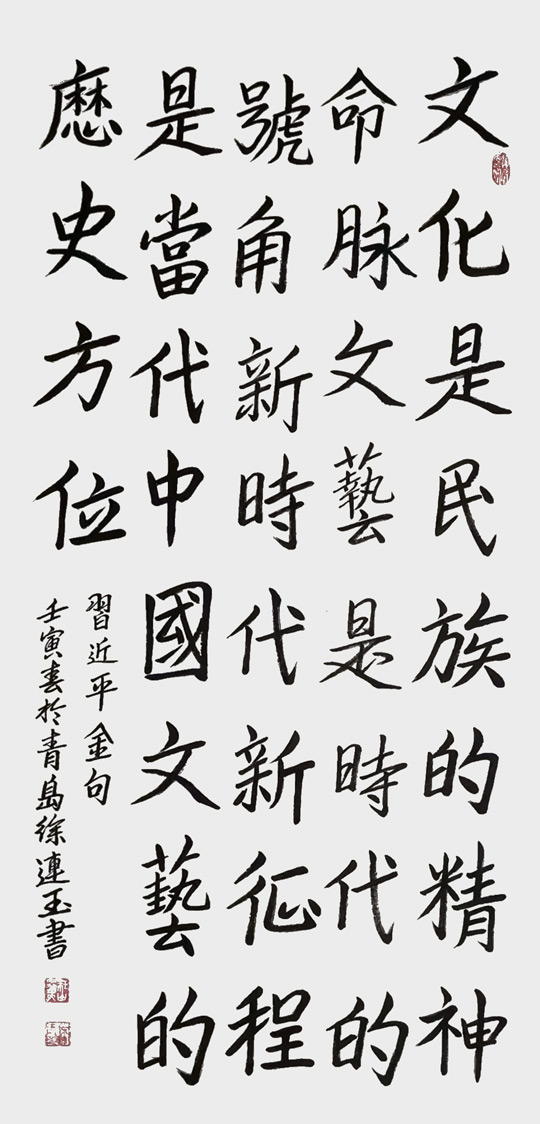 文化是民族的精神
命脉文藝是時代的
號角新時代新征程
是當代中國文藝的
歷史方位
習近平金句
壬寅春於青島徐連玉書